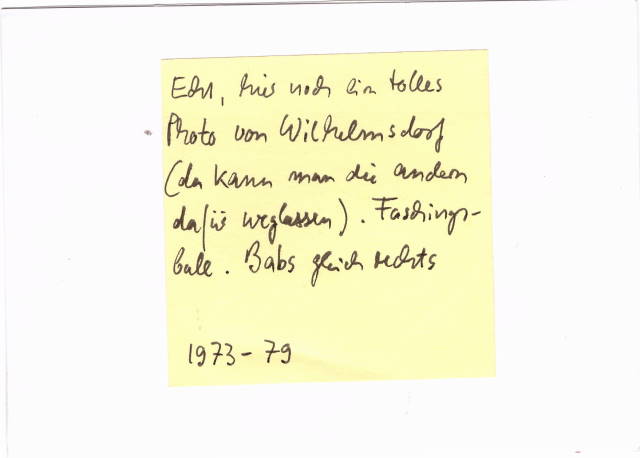 Edu, hier noch ein tolles
Photo von Wilhelmsdorf
(da kann man die andern
dafür weglassen). Faschings-
ball. Babs gleich rechts
1973-79